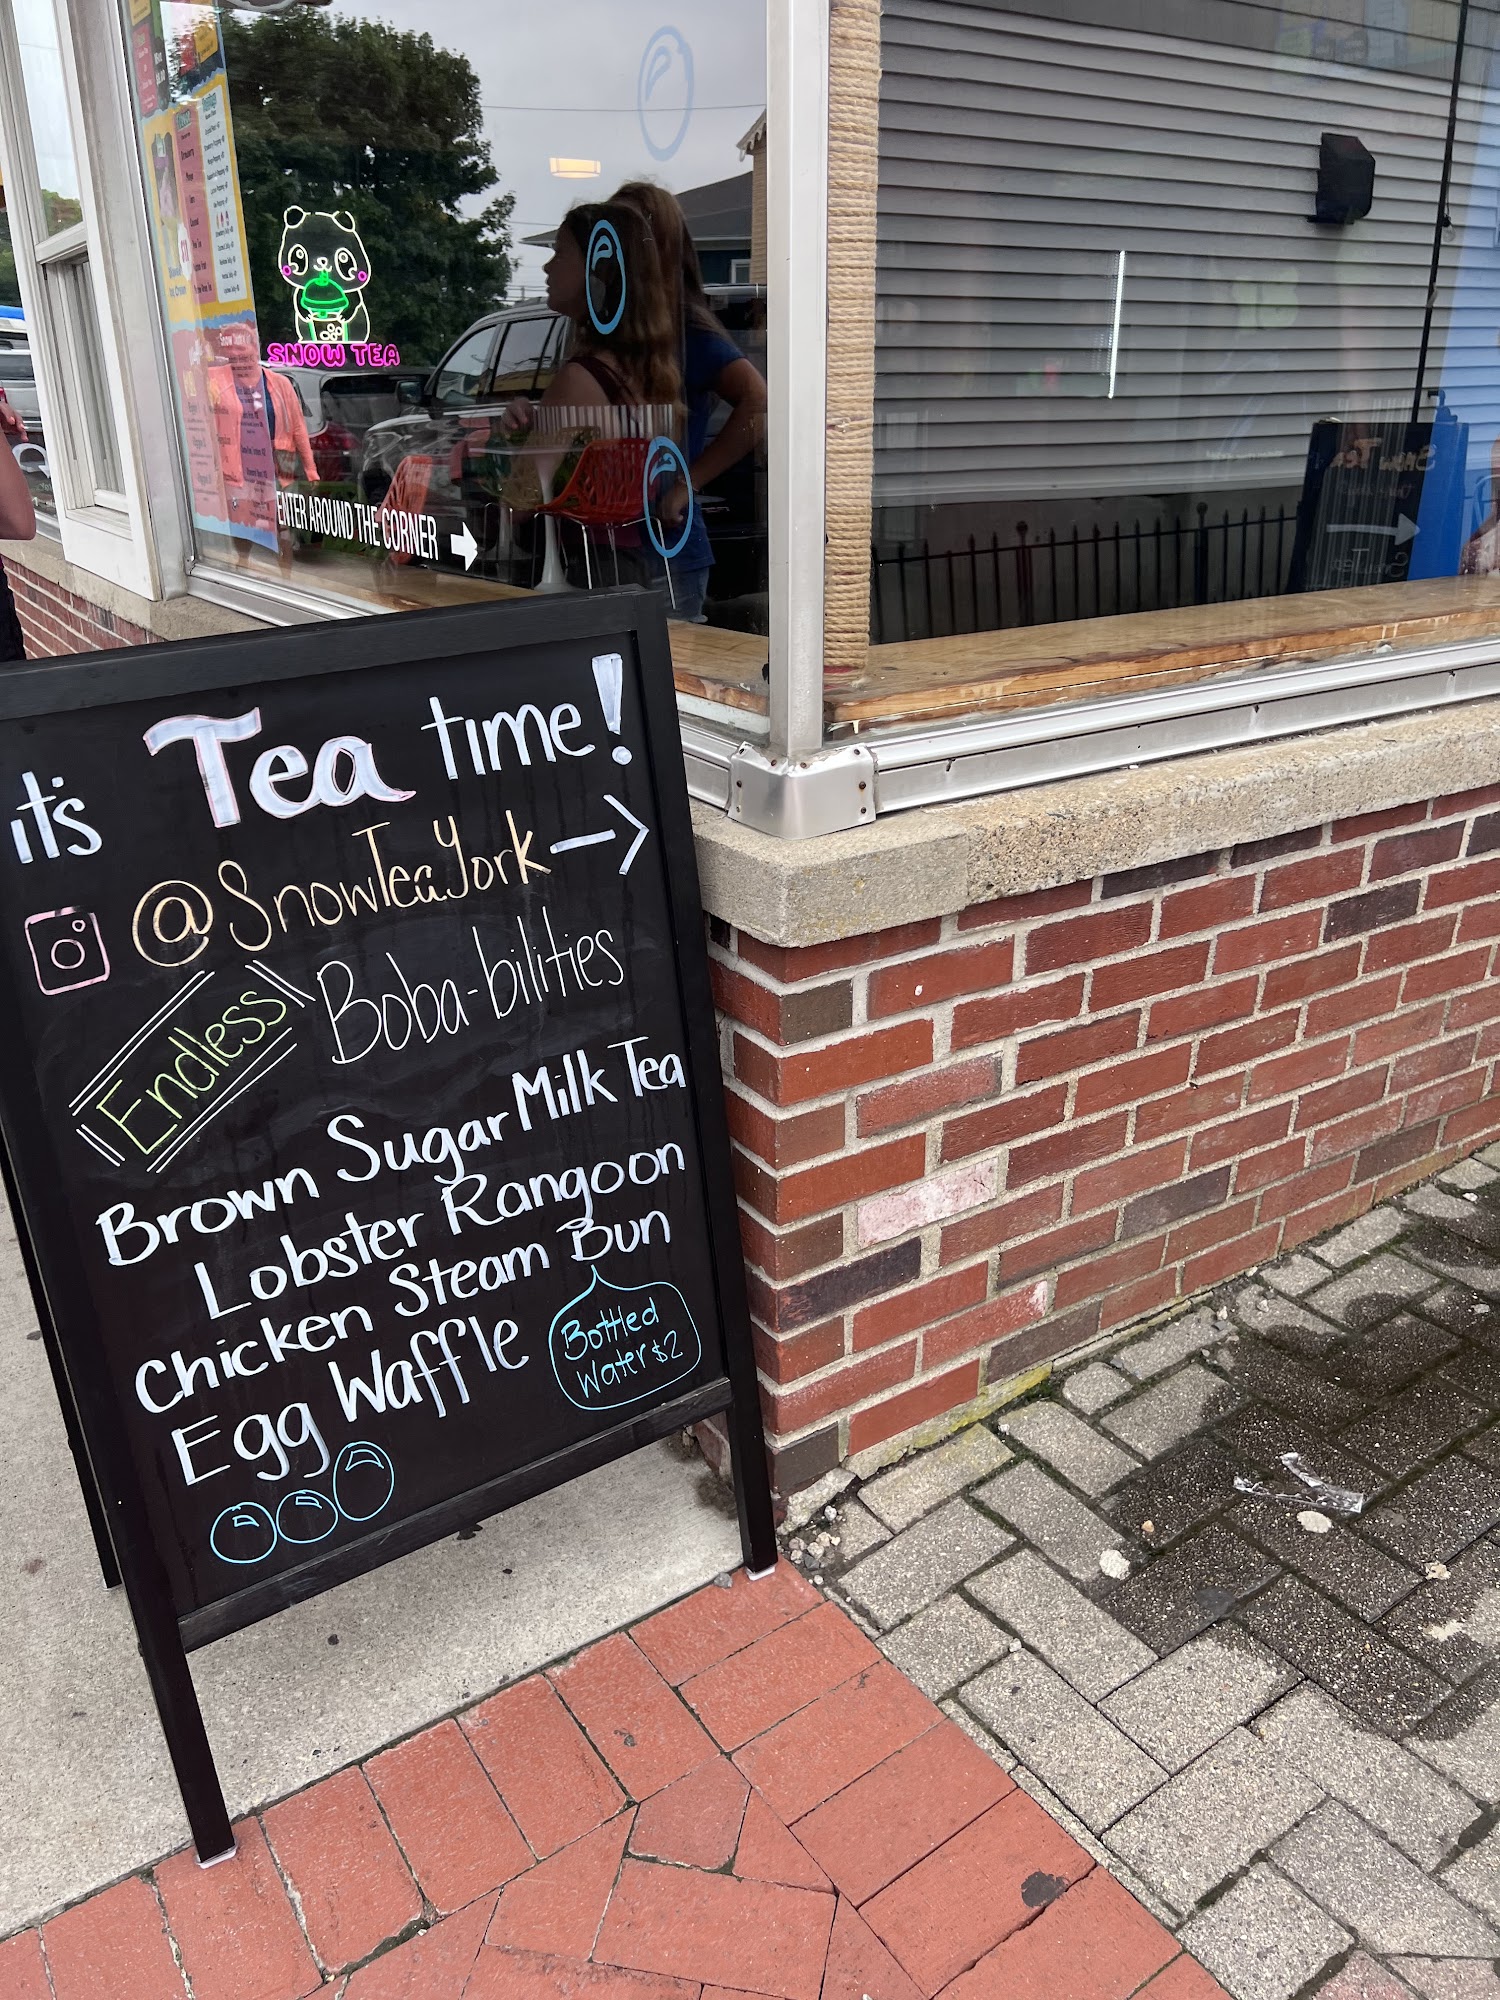 SNOW TEA
ENTER AROUND THE CORNER
it's Tea time!
@SnowTea.York
Endless Boba-bilities
Brown Sugar Milk Tea
Lobster Rangoon
Chicken Steam Bun
Egg Waffle
Bottled
Water $2